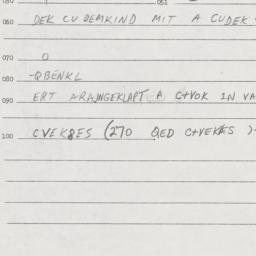 051
060 DEK CU DEMKIND MIT A CUDEK
070 O
080 -QBENKL
090 ERT ARAJNGEKLAPT A C+VOK IN VA
100 CVEKES (270 QED C+VEKES )